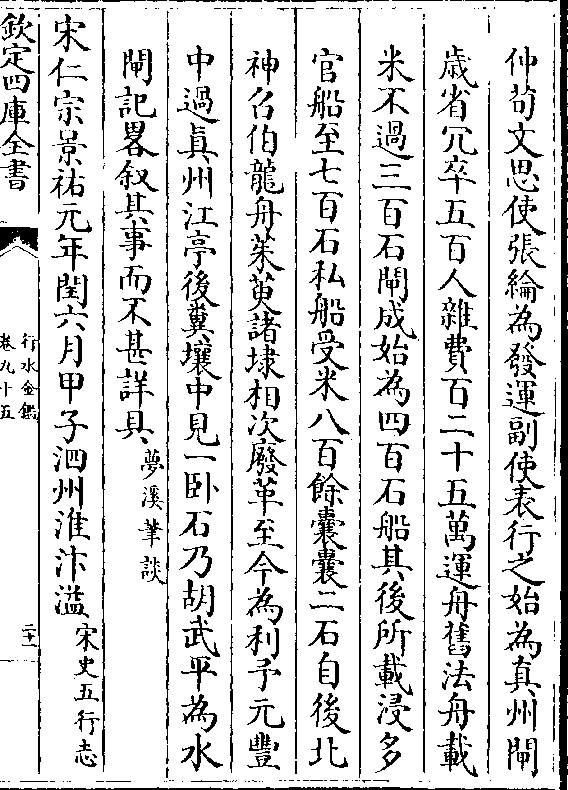 仲荀文思使張綸為發運副使表行之始為真州閘
歳省冗卒五百人雜費百二十五萬運舟舊法舟載
米不過三百石閘成始為四百石船其後所載浸多
官船至七百石私船受米八百餘囊囊二石自後北
神召伯龍舟茱萸諸埭相次廢革至今為利予元豐
中過真州江亭後糞壤中見一卧石乃胡武平為水
閘記畧叙其事而不甚詳具夢溪筆談
宋仁宗景祐元年閏六月甲子泗州淮汴溢宋史五行志
欽定四庫全書
行水金鑑
卷九十五
二十一